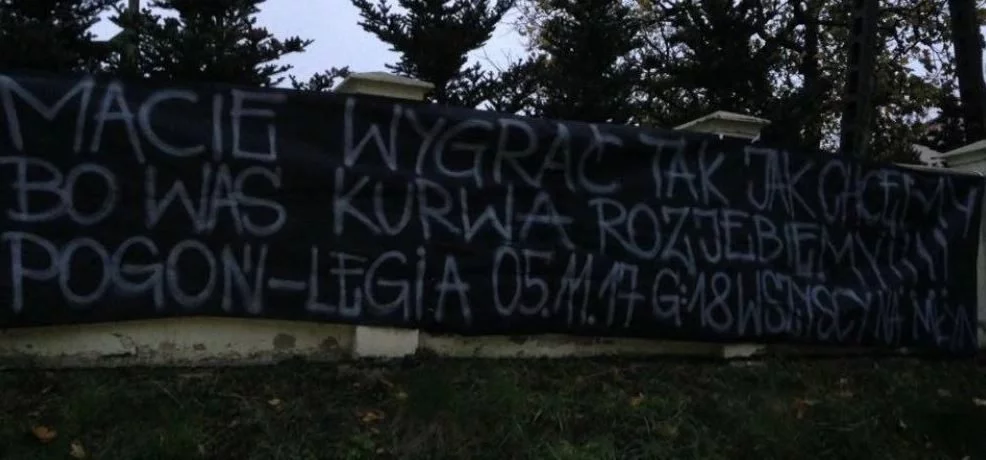 MACIE WYGRAĆ TAK JAK CHCEMY
BO WAS KURWA ROZJEBIEMY!!!!
POGOŃ-LEGiA 05.11.17 G:18 WSZYSCY NA MŁYN